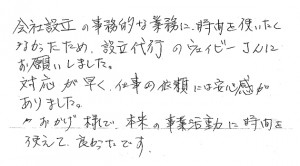 会社設立の事務的な業務に、時間を使いたく
なかったため、設立代行のウェイビーさんに
お願いしました。
対応が早く、仕事の依頼には安心感が
ありました。
おかげ様で、本来の事業活動に時間を
使えて、良かったです。